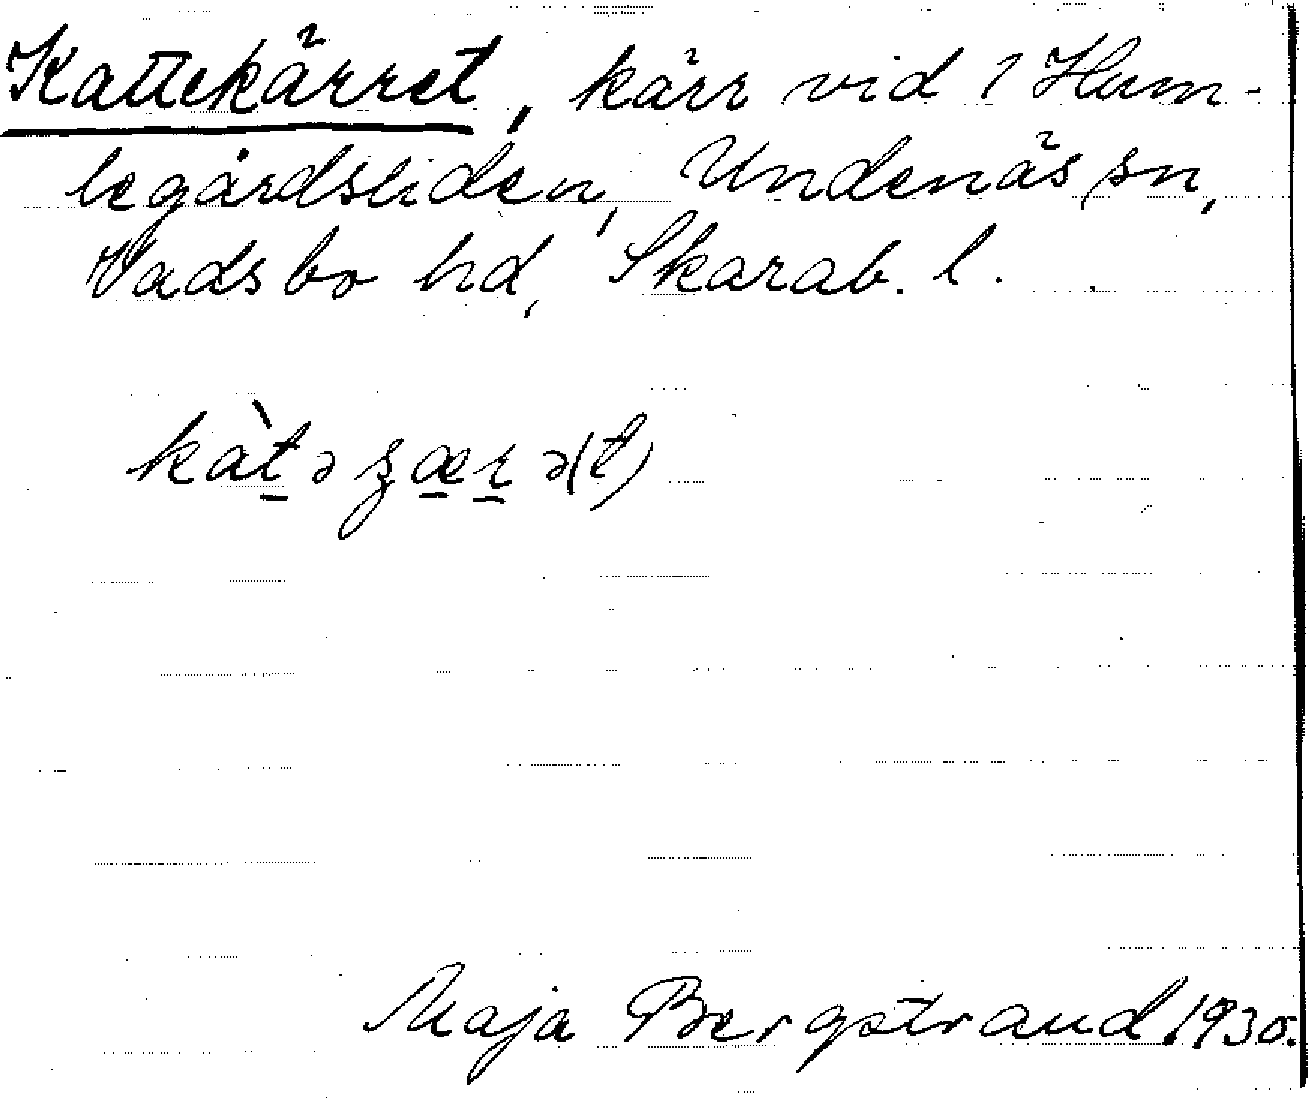 Kattekärret, kärr vid 1 Hum-
legårdsliden, Undenäs sn,
Vadsbo hd, Skarab. l.
kàt̠əʒæ̠r̠ə(t)
Maja Bergstrand 1930.